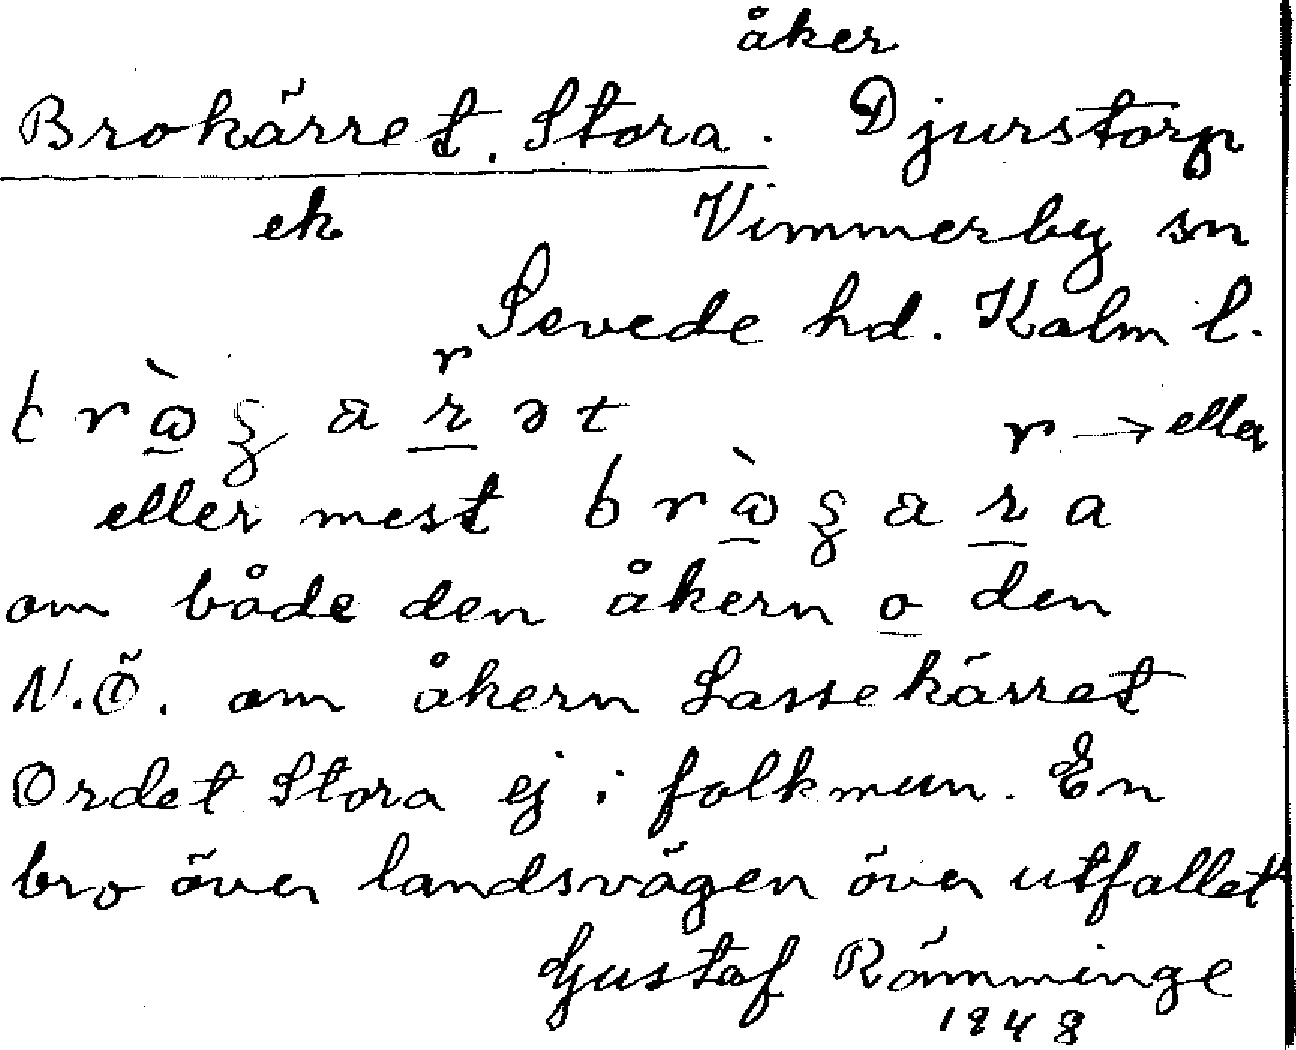 åker
Brokärret, Stora. Djurstorp
ek Vimmerby sn
Sevede hd. Kalm l.
r
r → eller
eller mest
om både den åkern o den
N.Ö. om åkern Lassekärret
Ordet Stora ej i folkmun. En
bro över landsvägen över utfallet
Gustaf Rämminge
1948